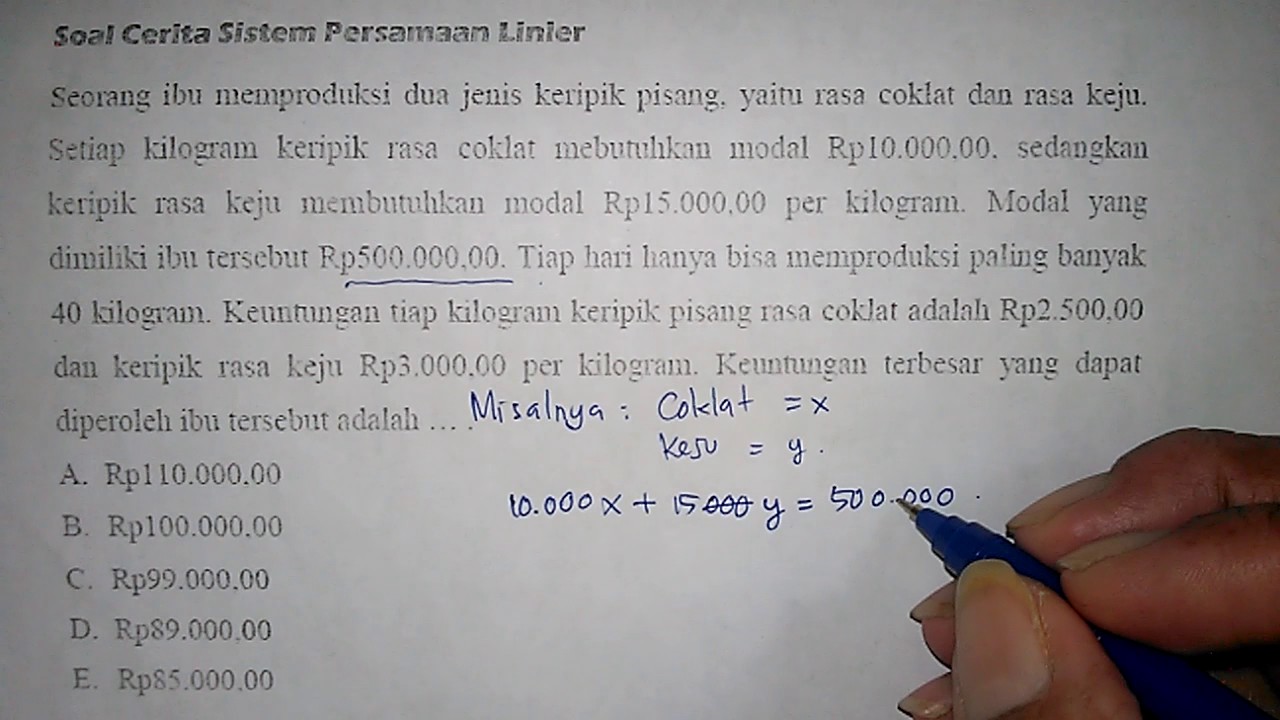 Soal Cerita Sistem Persamaan Linier
Seorang ibu memproduksi dua jenis keripik pisang, yaitu rasa coklat dan rasa keju.
Setiap kilogram keripik rasa coklat mebutuhkan modal Rp10.000,00, sedangkan
keripik rasa keju membutuhkan modal Rp15.000,00 per kilogram. Modal yang
dimiliki ibu tersebut Rp500.000,00. Tiap hari hanya bisa memproduksi paling banyak
40 kilogram. Keuntungan tiap kilogram keripik pisang rasa coklat adalah Rp2.500,00
dan keripik rasa keju Rp3.000,00 per kilogram. Keuntungan terbesar yang dapat
diperoleh ibu tersebut adalah .... Misalnya : Coklat = x
Keju = y.
A. Rp110.000,00
10.000 x + 15000 y = 500.000
B. Rp100.000,00
C. Rp99.000,00
D. Rp89.000,00
E. Rp85.000,00